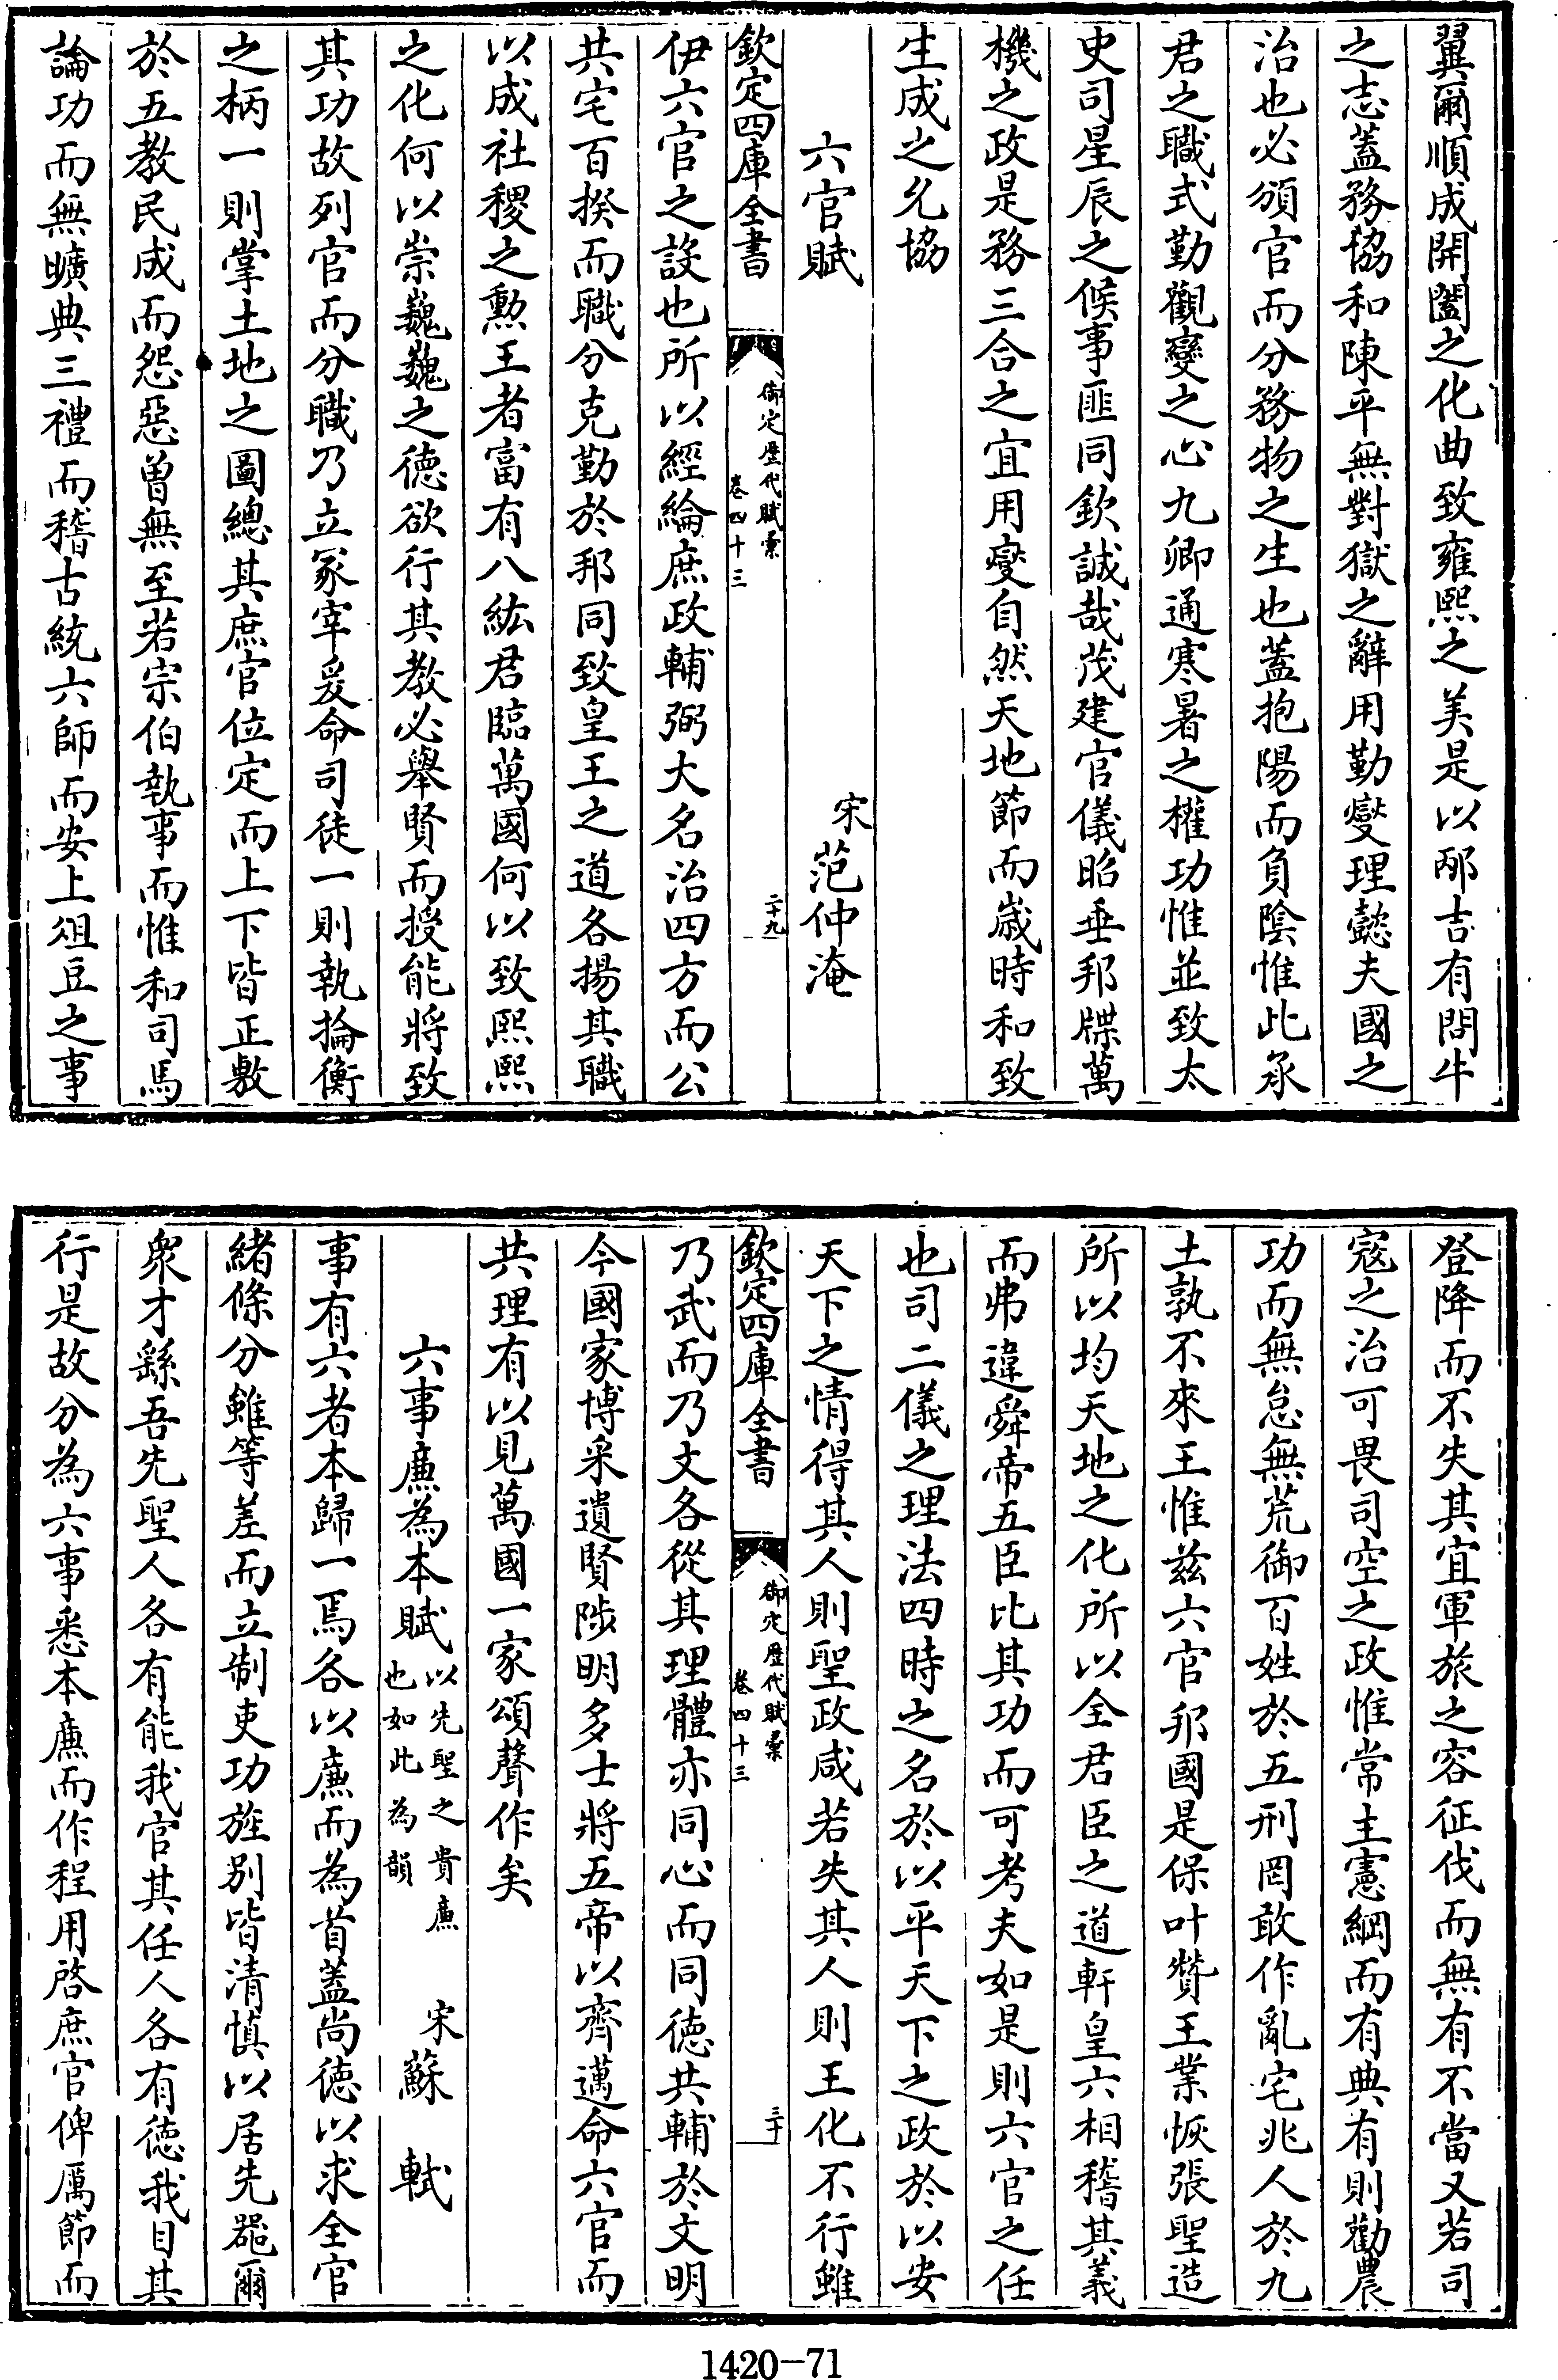 翼爾順成開闔之化曲致雍熙之美是以邴吉有問牛
之志蓋務協和陳平無對獄之辭用勤燮理懿夫國之
治也必頒官而分務物之生也蓋抱陽而負陰惟此承
君之職式勤觀變之心九卿通寒暑之權功惟並致太
史司星辰之候事匪同欽誠哉茂建官儀昭垂邦牒萬
機之政是務三合之宜用燮自然天地節而歳時和致
生成之允協
六官賦
宋范仲淹
欽定四庫全書
御定歴代賦彙
卷四十三
二十九
伊六官之設也所以經綸庶政輔弼大名治四方而公
共宅百揆而職分克勤於邦同致皇王之道各揚其職
以成社稷之勲王者富有八紘君臨萬國何以致熙熙
之化何以崇巍巍之徳欲行其教必舉賢而授能將致
其功故列官而分職乃立冢宰爰命司徒一則執掄衡
之柄一則掌土地之圖總其庶官位定而上下皆正敷
於五教民成而怨惡曽無至若宗伯執事而惟和司馬
論功而無曠典三禮而稽古統六師而安上俎豆之事
登降而不失其宜軍旅之容征伐而無有不當又若司
寇之治可畏司空之政惟常主憲綱而有典有則勸農
功而無怠無荒御百姓於五刑罔敢作亂宅兆人於九
土孰不來王惟兹六官邦國是保叶贊王業恢張聖造
所以均天地之化所以全君臣之道軒皇六相稽其義
而弗違舜帝五臣比其功而可考夫如是則六官之任
也司二儀之理法四時之名於以平天下之政於以安
天下之情得其人則聖政咸若失其人則王化不行雖
欽定四庫全書
御定歴代賦彙
卷四十三
三十
乃武而乃文各從其理體亦同心而同徳共輔於文明
今國家博采遺賢陟明多士將五帝以齊邁命六官而
共理有以見萬國一家頌聲作矣
六事廉為本賦
以先聖之貴廉
也如此為韻
宋蘇軾
事有六者本歸一焉各以廉而為首蓋尚徳以求全官
緒條分雖等差而立制吏功旌别皆清慎以居先噐爾
衆才繇吾先聖人各有能我官其任人各有徳我目其
行是故分為六事悉本廉而作程用啓庶官俾厲節而
1420-71